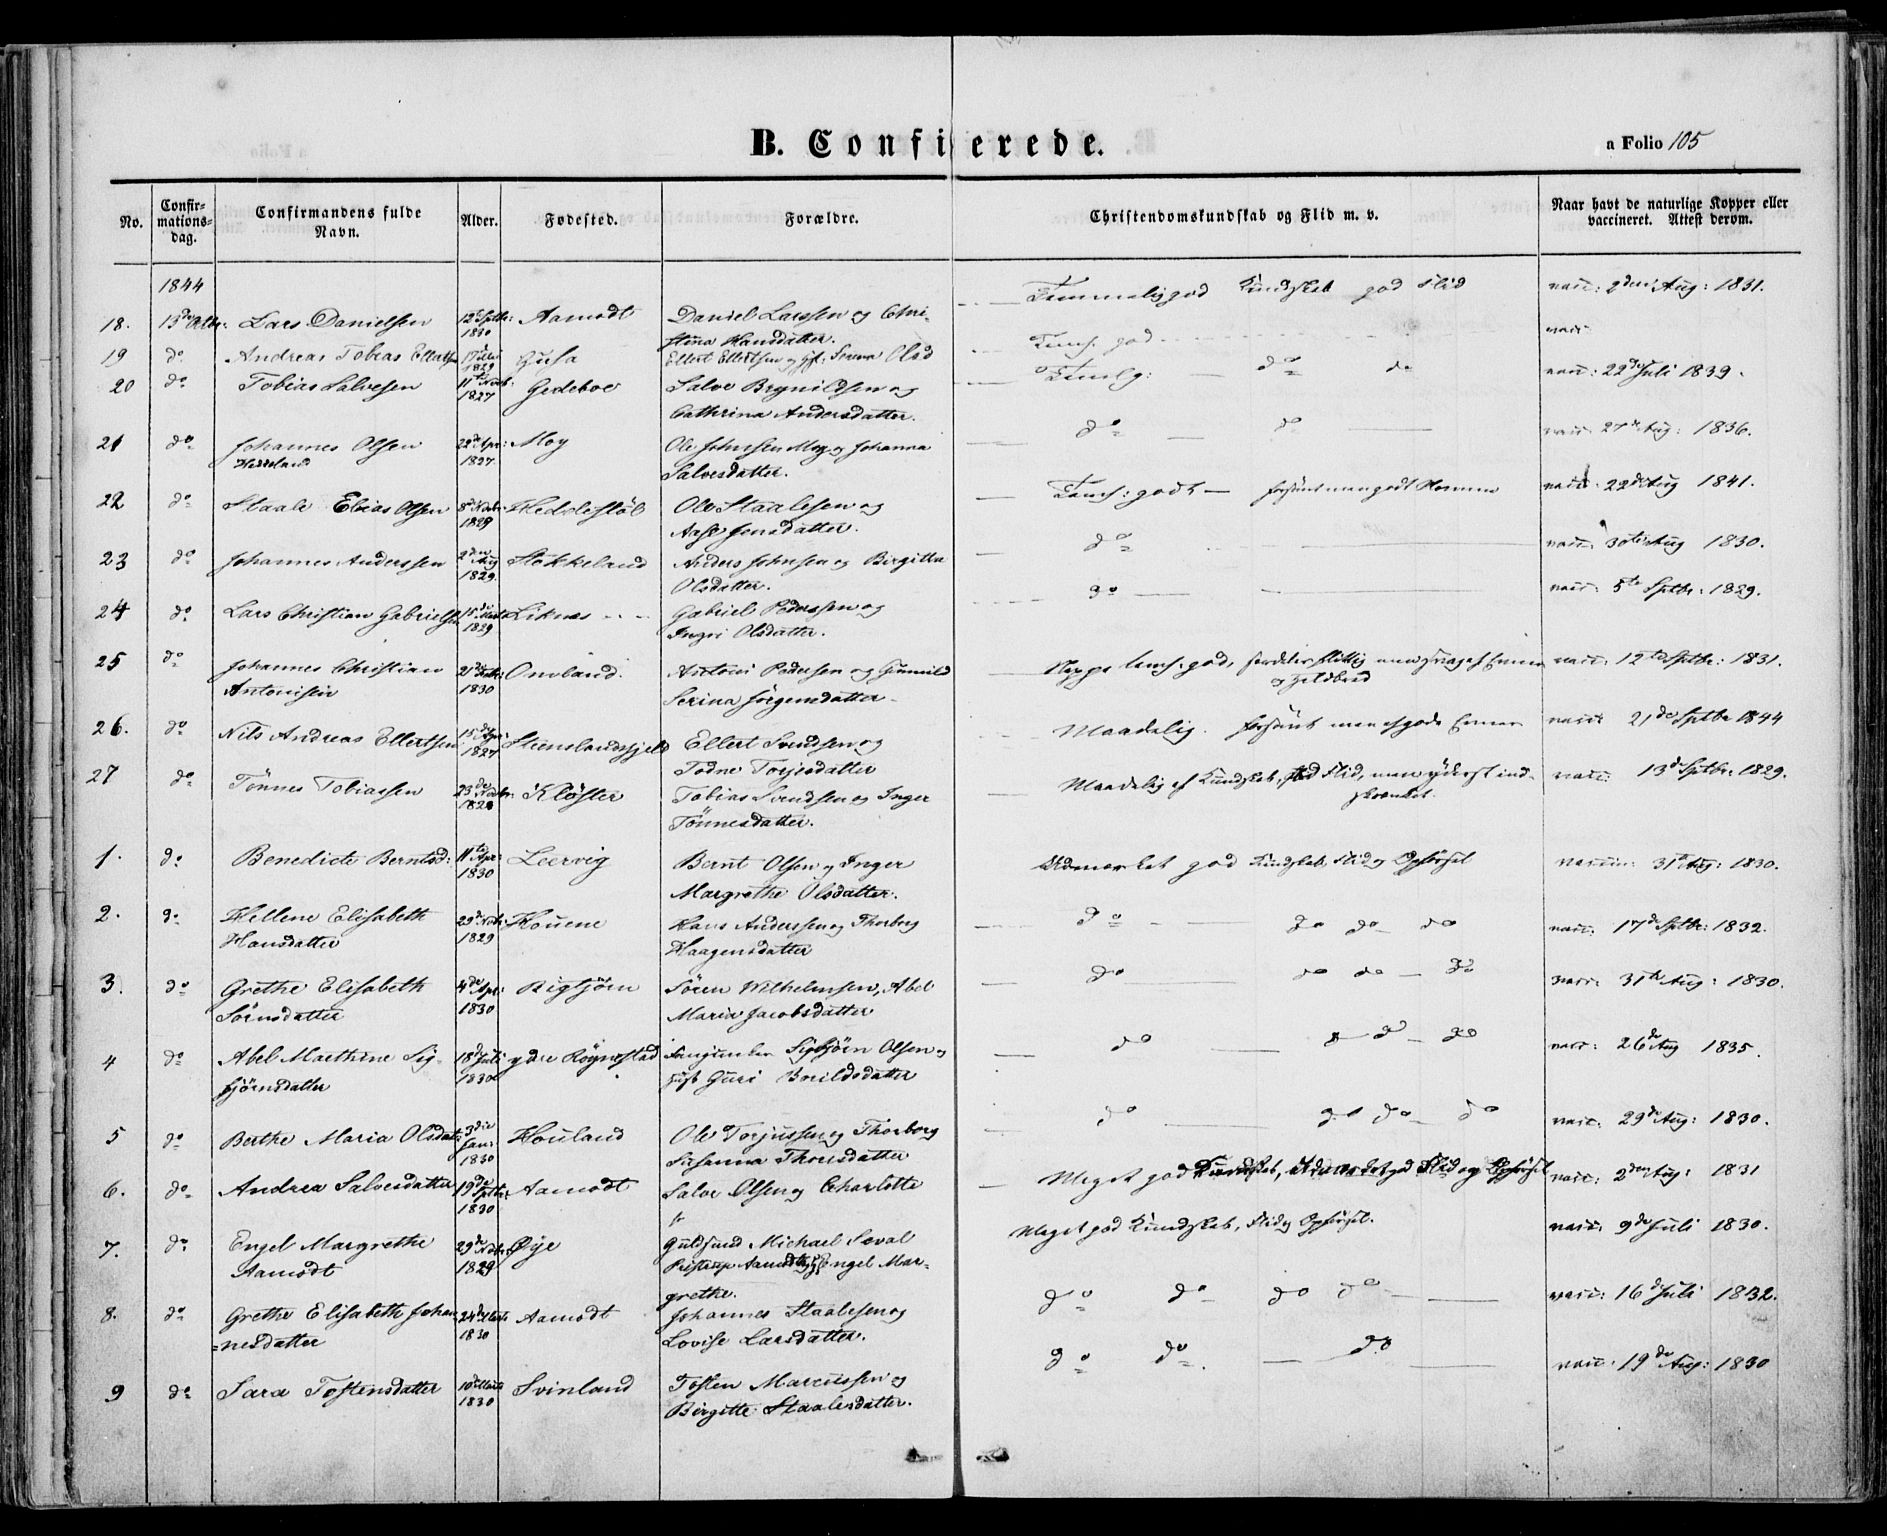 B. Confirmerede.
a Folio 105
No.
Confir-
mations-
dag.
Confirmandens fulde
Navn.
Alder.
Fødested.
Forældre.
Christendomskundskab og Flid m. v.
Naar havt de naturlige Kopper eller
vaccineret. Attest derom.
1844
18. 13de Octbr: Lars Danielsen 12te Sptbr: 1830 Aamodt Daniel Larssen og Chri-
stina Hansdatter. Temmelig god Kundskab god Flid vacc: 2den Aug: 1831.
19 do Andreas Tobias 1829 Ellert Ellertsen og Serina Olsd Tems. god vacc:
20 do Tobias Salvesen 11te Novb: 1827 Gedeboe Salve Brynildsen og
Cathrina Andersdatter. Temlg: do do vacc: 22de Juli 1839.
21 do Johannes Olsen 22de Apr: 1827 Moy Ole Johnsen Moy og Johanna
Salvesdatter. do do vacc: 27de Aug: 1836.
22 do Staale Elias Olsen 8de Novbr: 1829 Heddestøl Ole Staalesen og
Aase Jensdatter. Tems: godt vacc: 22de Aug 1841.
23 do Johannes Anderssen 2den Aug 1829 Stokkeland Anders Johnsen og Birgitta
Olsdatter. do vacc: 30te Aug 1830.
24 do Lars Christian Gabrielsen 15de 1829 Liknes Gabriel Pederssen og
Ingri Olsdatter. do vacc: 5te Sptbr: 1829.
25 do Johannes Christian
Antonisen 1830 Omland. Antoni Pedersen og Gunnild
Serina Jørgensdatter vacc: 12te Sptbr: 1831.
26. do Nils Andreas Ellertsen 15de Apr: 1827 Steenslandsfjeld Ellert Svendsen og
Todne Torjesdatter Maadelig. vacc: 21de Sptbr 1844
27 do Tønnes Tobiassen 23de Novbr: Kløster Tobias Svendsen og Inger
Tønnesdatter. Maadelig af Kundskab, god Flid, men yderst ind-
skrænket. vacc: 13de Sptbr: 1829.
1. do Benedicte Berntsd: 11te Apr: 1830 Leervig Bernt Olsen og Inger
Margrethe Olsdatter. Udmærket god Kundskab, Flid og Opførsel vaccin: 31te Aug: 1830.
2. do Hellene Elisabeth
Hansdatter 29de Novbr: 1829 Houene Hans Anderssen og Thorborg
Haagensdatter do do do do vacc: 17de Sptbr: 1832.
3. do Grethe Elisabeth
Sørnsdatter 4de Apr: 1830 Rigbjørn Søren Wilhelmsen, Abel
Maria Jacobsdatter do do do do vacc: 31te Aug: 1830.
4 do Abel Marthine Sig-
bjørnsdatter 18de Juli 1830 ydre Røynestad Sigbjørn Olsen og
Guri do do do vacc: 26de Aug 1835.
5 do Berthe Maria Olsdatter 3die Jan: 1830 Houland Ole Torjussen og Thorborg
Susanna Thorisdatter do do do do vacc: 29de Aug: 1830.
6. do Andrea Salvesdatter 19de Sptbr: 1830 Aamodt Salve Olsen og Charlotte
Meget god Kundskab, udmærket god Flid og Opførsel vacc: 2den Aug: 1831
7. do Engel Margrethe
Aamodt 29de Novbr: 1829 Øye Guldsmed Michael Seval
Pristrup Aamodt og Engel Mar-
grethe. Meget god Kundskab, Flid og Opførsel. vacc: 9de Juli 1830.
8. do Grethe Elisabeth Johan
=nesdatter 24de Marts 1830 Aamodt Johannes Staalesen og
Lovise Larsdatter. do do do do vacc: 16de Juli 1832.
9 do Sara Tostensdatter 10de Marts 1830 Svinland Tosten Marcussen og
Birgitte Staalesdatter. do do do vacc: 19de Aug: 1830